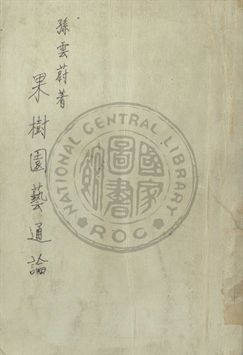 孫雲蔚著
果樹園藝通論
NATIONAL CENTRAL LIBRARY
ROC
國家圖書館